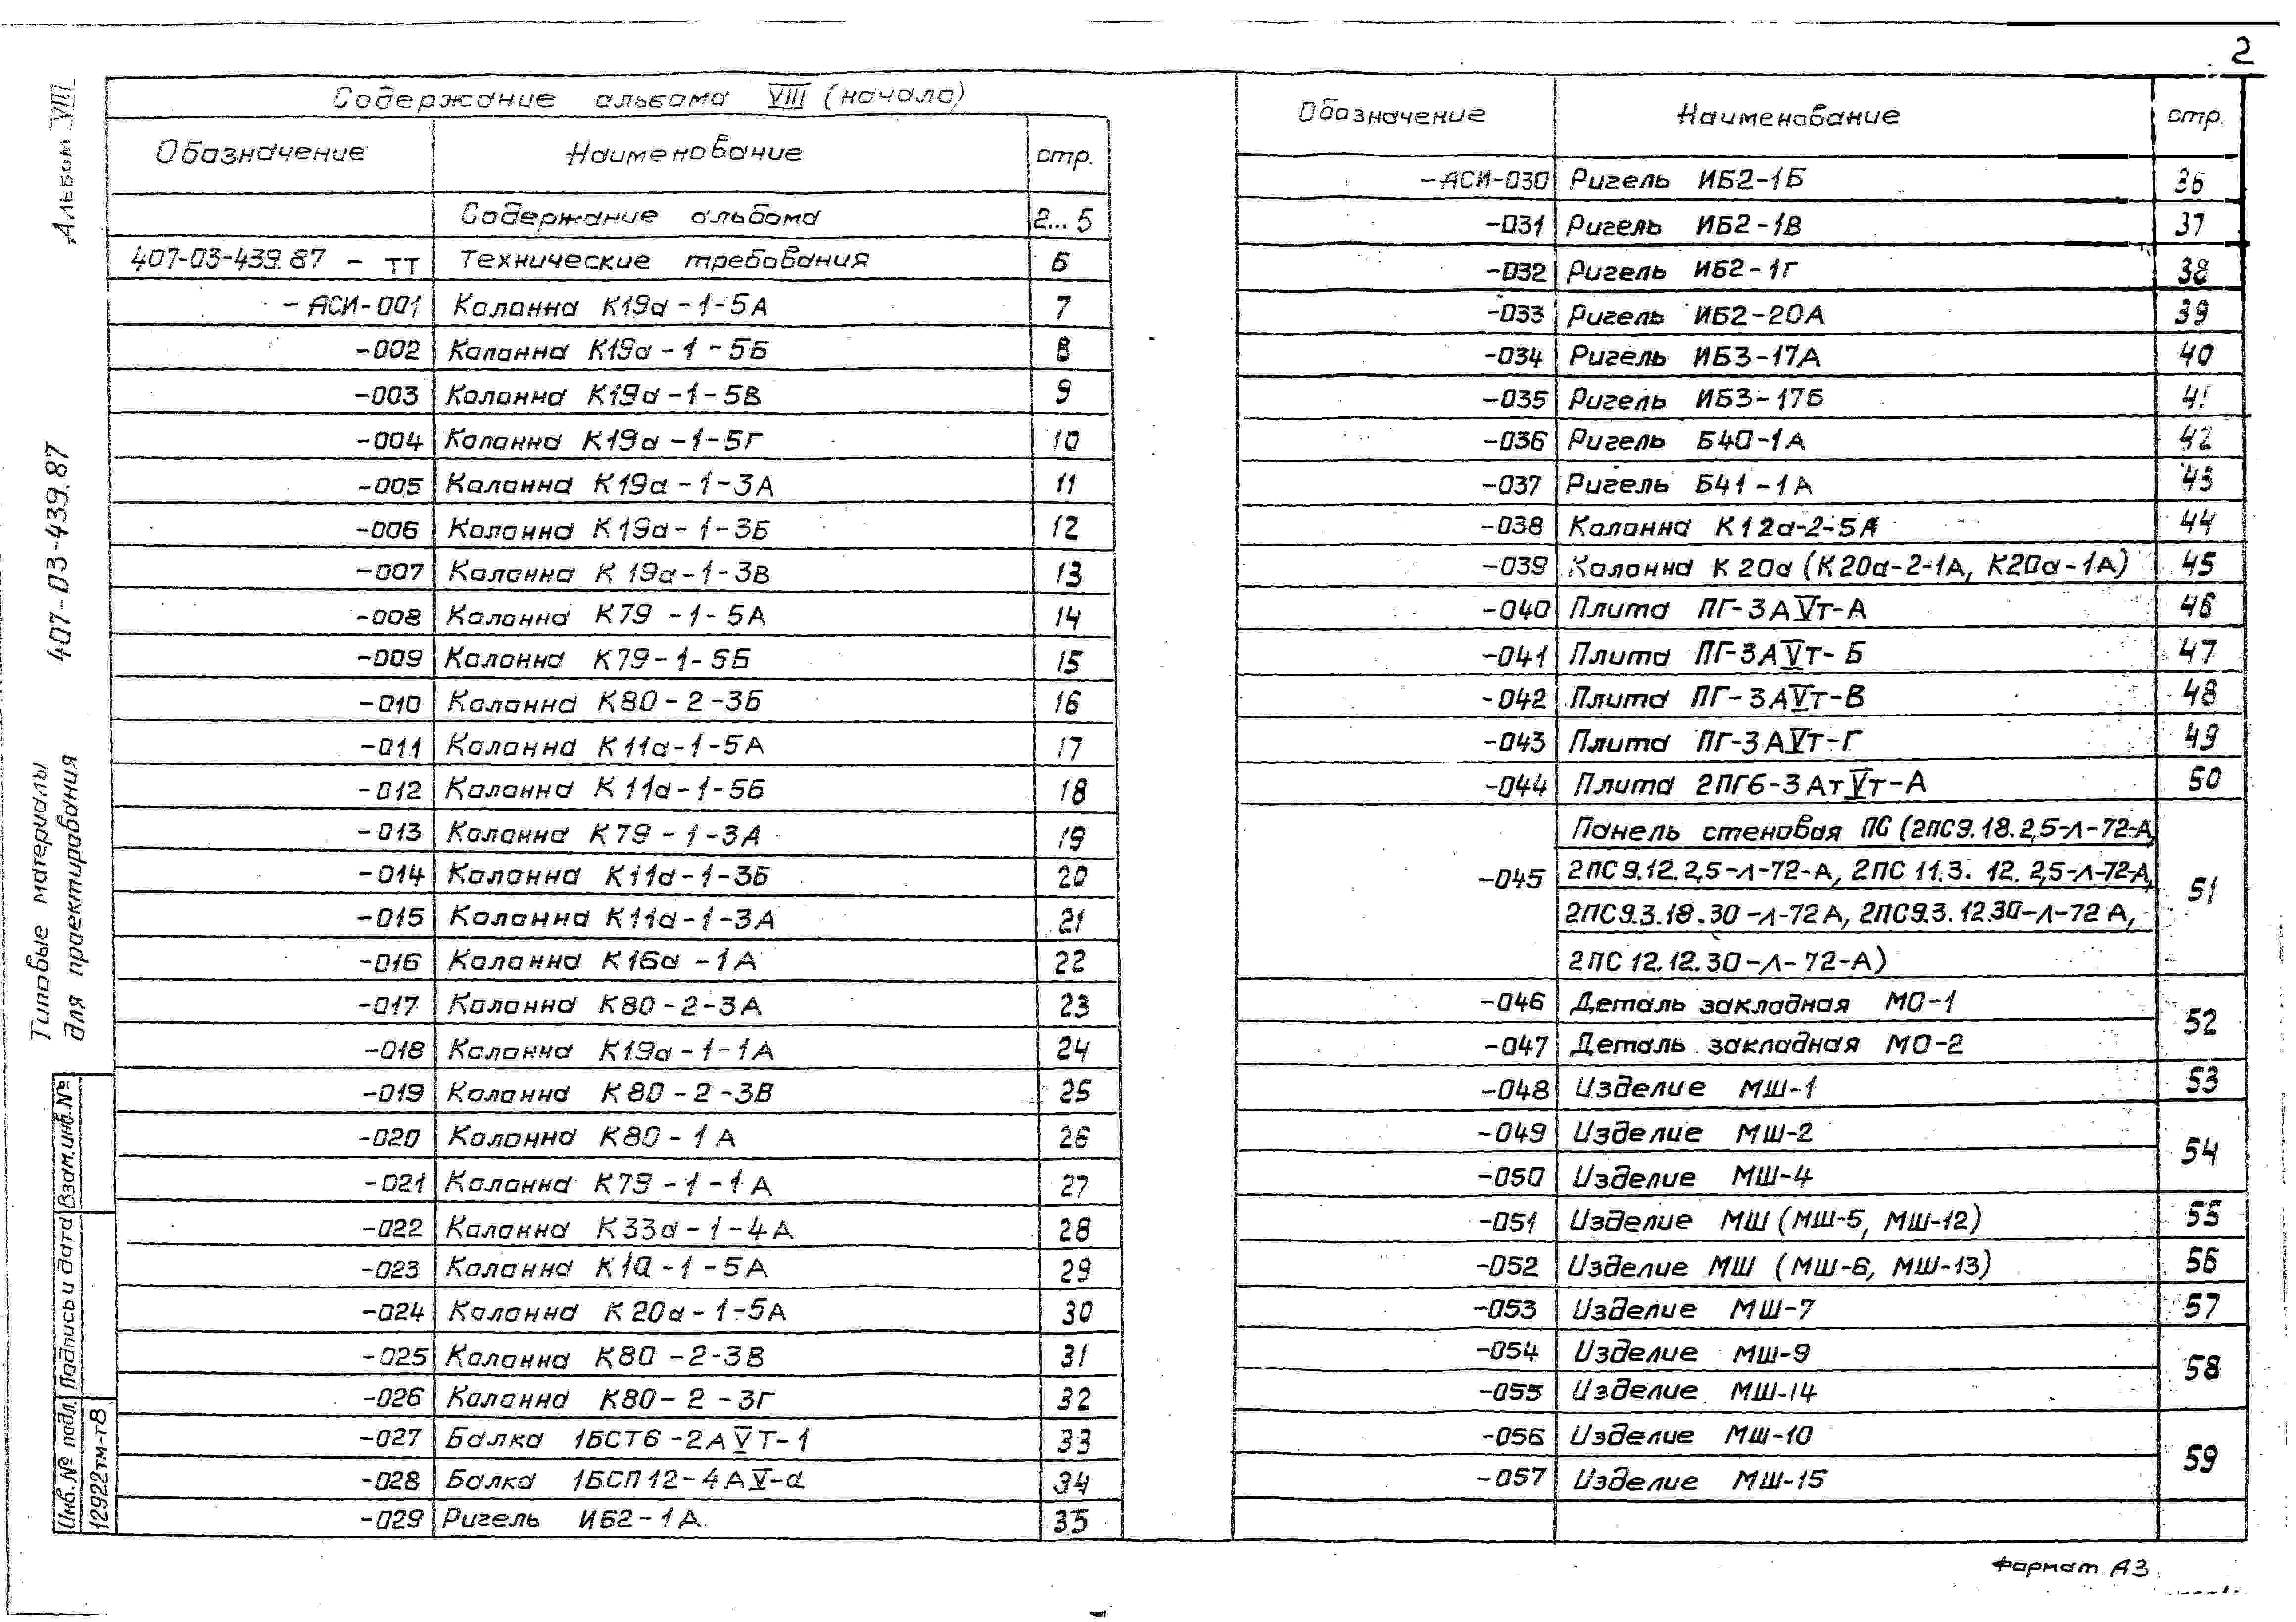 2
Альбом VIII
407-03-439.87
Типовые материалы
для проектирования
Взам.инв.№
Подпись и дата
Инв.№ подл.
12922тм-т8
Содержание альбома VIII (начало)
Обозначение Наименование стр.
Содержание альбома 2...5
407-03-439.87 - ТТ Технические требования 6
-АСИ-001 Колонна К19а-1-5А 7
-002 Колонна К19а-1-5Б 8
-003 Колонна К19а-1-5В 9
-004 Колонна К19а-1-5Г 10
-005 Колонна К19а-1-3А 11
-006 Колонна К19а-1-3Б 12
-007 Колонна К19а-1-3В 13
-008 Колонна К79-1-5А 14
-009 Колонна К79-1-5Б 15
-010 Колонна К80-2-3Б 16
-011 Колонна К11а-1-5А 17
-012 Колонна К11а-1-5Б 18
-013 Колонна К79-1-3А 19
-014 Колонна К11а-1-3Б 20
-015 Колонна К11а-1-3А 21
-016 Колонна К16а-1А 22
-017 Колонна К80-2-3А 23
-018 Колонна К19а-1-1А 24
-019 Колонна К80-2-3В 25
-020 Колонна К80-1А 26
-021 Колонна К79-1-1А 27
-022 Колонна К33а-1-4А 28
-023 Колонна К1а-1-5А 29
-024 Колонна К20а-1-5А 30
-025 Колонна К80-2-3В 31
-026 Колонна К80-2-3Г 32
-027 Балка 1БСТ6-2АVТ-1 33
-028 Балка 1БСП12-4АV-а 34
-029 Ригель ИБ2-1А 35
Обозначение Наименование стр.
-АСИ-030 Ригель ИБ2-1Б 36
-031 Ригель ИБ2-1В 37
-032 Ригель ИБ2-1Г 38
-033 Ригель ИБ2-20А 39
-034 Ригель ИБ3-17А 40
-035 Ригель ИБ3-17Б 41
-036 Ригель Б40-1А 42
-037 Ригель Б41-1А 43
-038 Колонна К12а-2-5А 44
-039 Колонна К20а (К20а-2-1А, К20а-1А) 45
-040 Плита ПГ-3АVт-А 46
-041 Плита ПГ-3АVт-Б 47
-042 Плита ПГ-3АVт-В 48
-043 Плита ПГ-3АVт-Г 49
-044 Плита 2ПГ6-3АтVт-А 50
Панель стеновая ПС (2ПС9.18.2,5-Л-72-А,
-045 2ПС9.12.2,5-Л-72-А, 2ПС 11.3.12.2,5-Л-72-А, 51
2ПС9.3.18.30-Л-72А, 2ПС9.3.12.30-Л-72А,
2ПС12.12.30-Л-72-А)
-046 Деталь закладная МО-1 52
-047 Деталь закладная МО-2
-048 Изделие МШ-1 53
-049 Изделие МШ-2 54
-050 Изделие МШ-4
-051 Изделие МШ (МШ-5, МШ-12) 55
-052 Изделие МШ (МШ-6, МШ-13) 56
-053 Изделие МШ-7 57
-054 Изделие МШ-9 58
-055 Изделие МШ-14
-056 Изделие МШ-10 59
-057 Изделие МШ-15
Формат А3